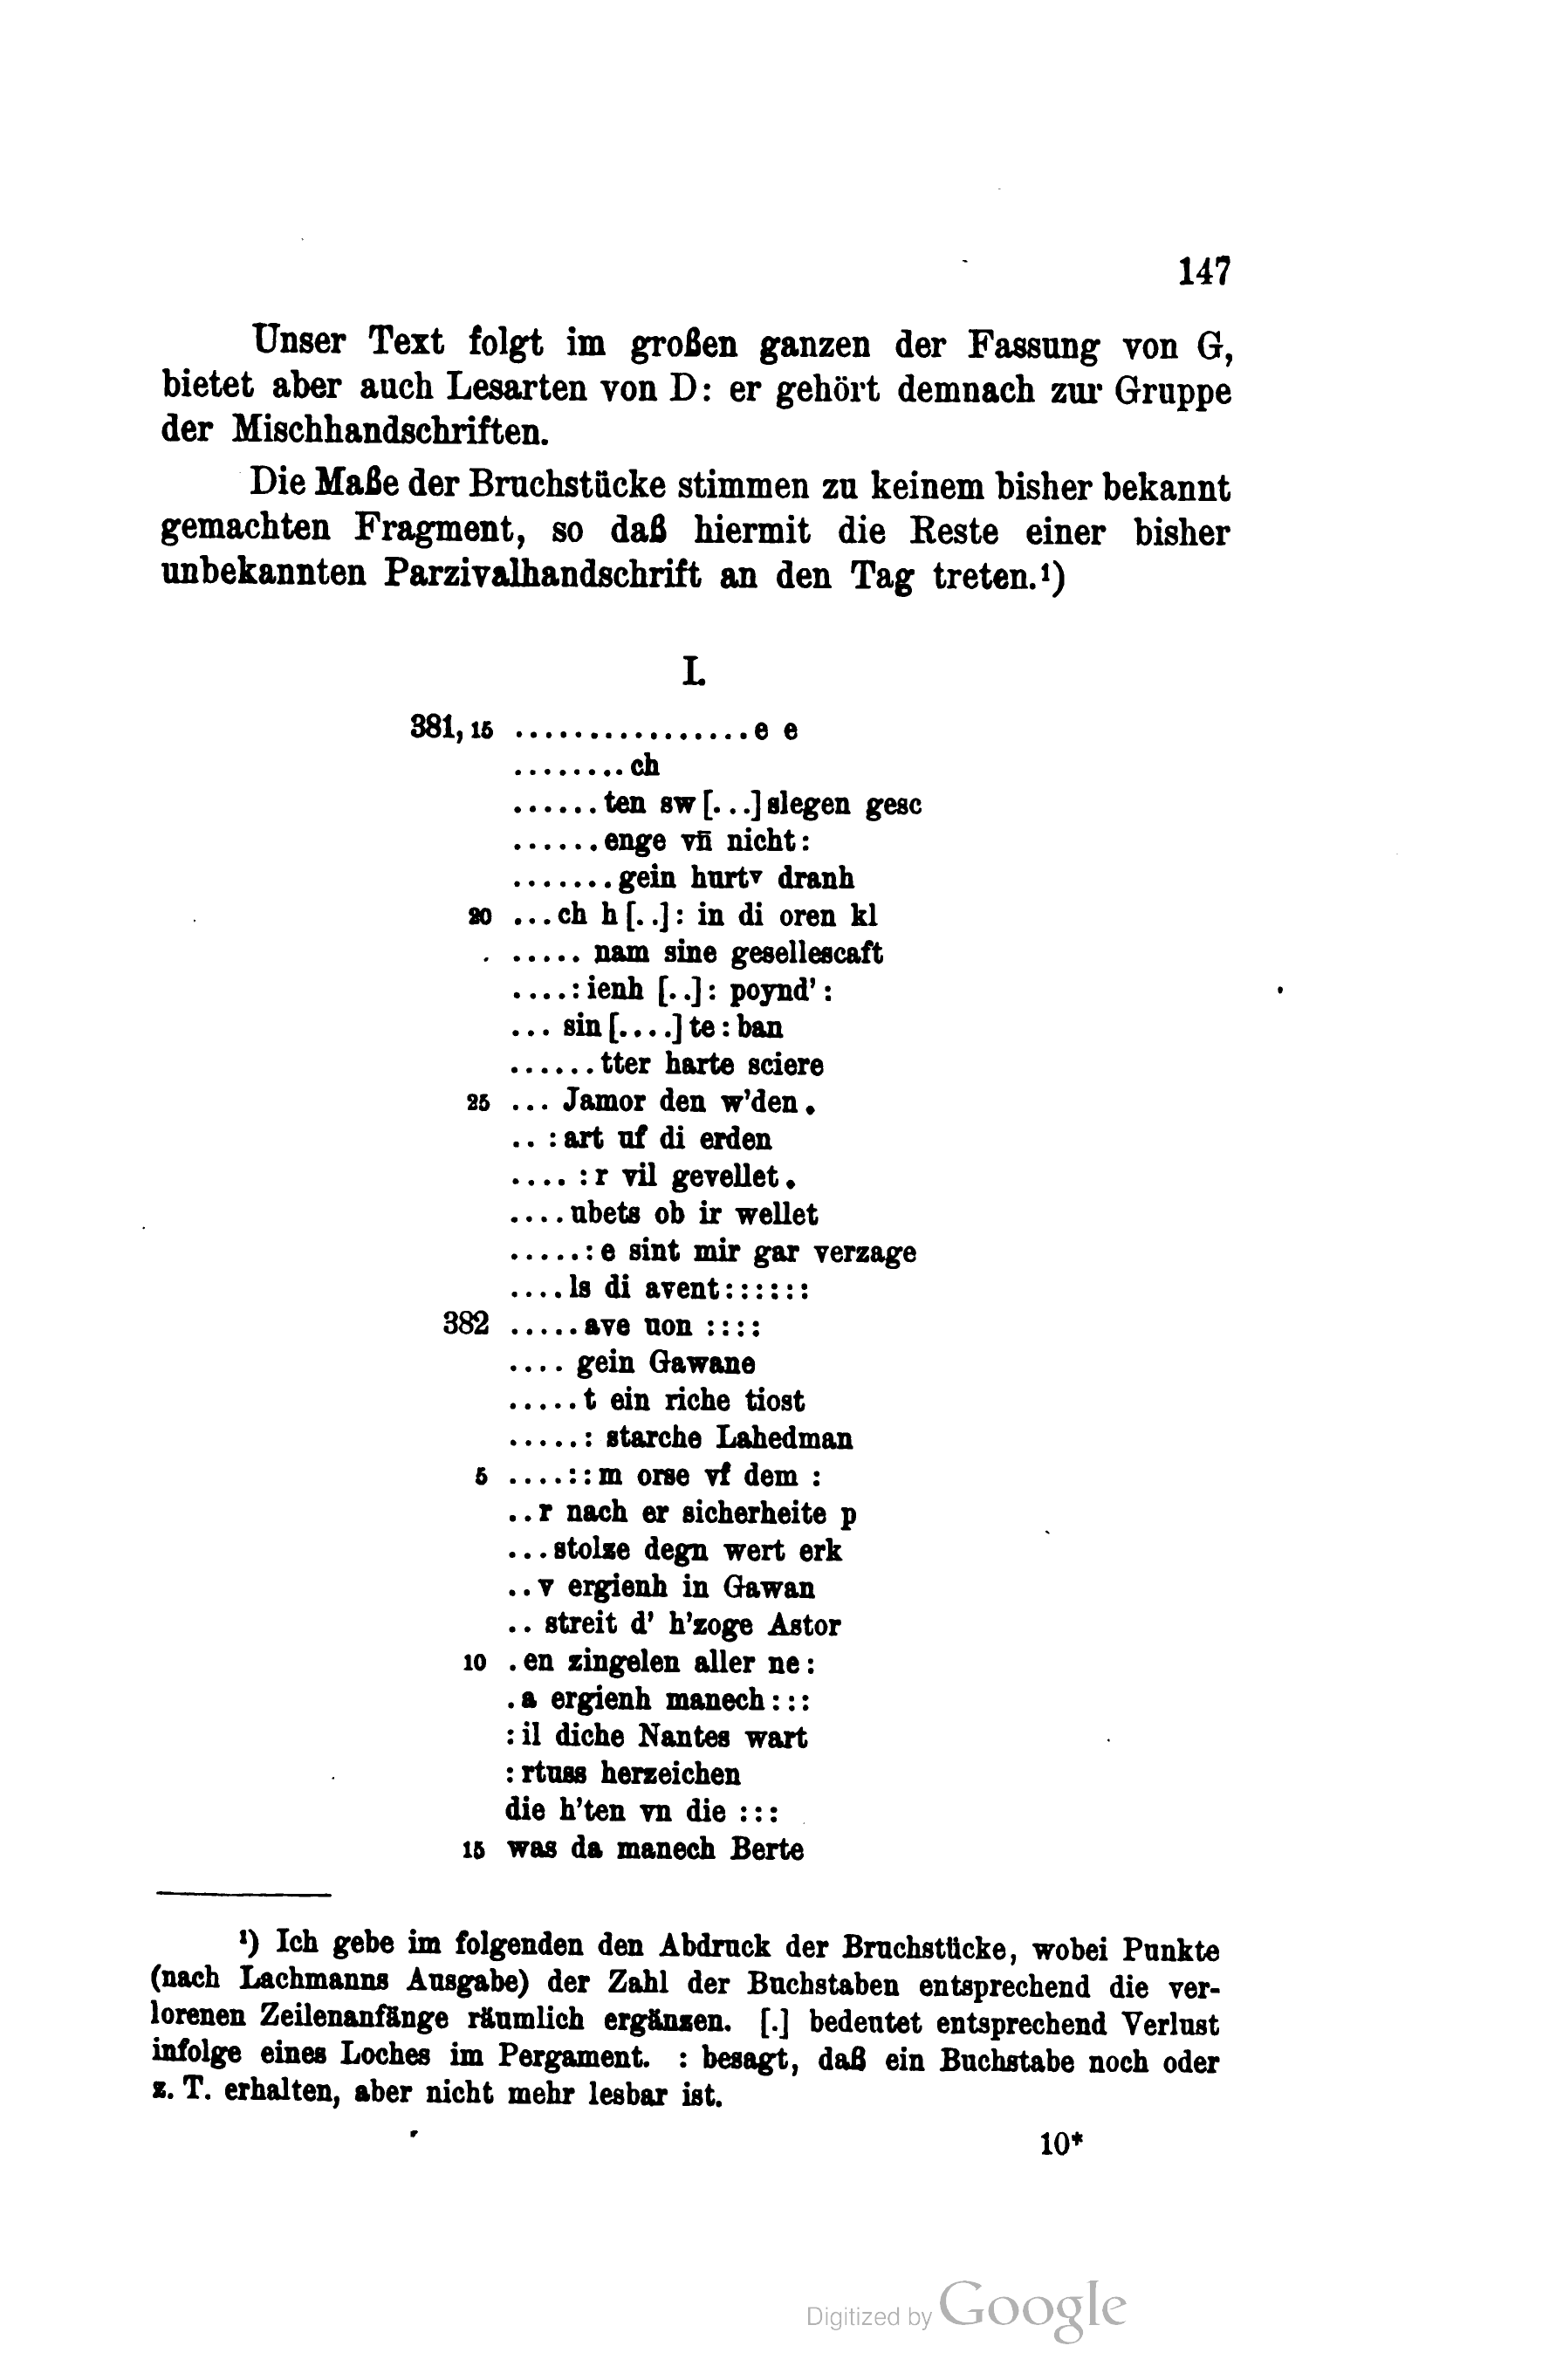 147
Unser Text folgt im großen ganzen der Fassung von G,
bietet aber auch Lesarten von D: er gehört demnach zur Gruppe
der Mischhandschriften.
Die Maße der Bruchstücke stimmen zu keinem bisher bekannt
gemachten Fragment, so daß hiermit die Reste einer bisher
unbekannten Parzivalhandschrift an den Tag treten.¹)
I.
381, 15 ................e e
........ch
......ten sw[...]slegen gesc
......enge vn̄ nicht:
.......gein hurtᵛ dranh
20 ...ch h[..]: in di oren kl
..... nam sine gesellescaft
....:ienh [..]: poynd' :
... sin[....]te:ban
......tter harte sciere
25 ... Jamor den w'den.
.. :art uf di erden
.... :r vil gevellet.
....ubets ob ir wellet
.....:e sint mir gar verzage
....ls di avent::::::
382 .....ave uon ::::
.... gein Gawane
.....t ein riche tiost
.....: starche Lahedman
5 ....::m orse vf dem :
..r nach er sicherheite p
...stolze degn wert erk
..v ergienh in Gawan
.. streit d' h'zoge Astor
10 .en zingelen aller ne:
.a ergienh manech:::
:il diche Nantes wart
:rtuss herzeichen
die h'ten vn die :::
15 was da manech Berte
¹) Ich gebe im folgenden den Abdruck der Bruchstücke, wobei Punkte
(nach Lachmanns Ausgabe) der Zahl der Buchstaben entsprechend die ver-
lorenen Zeilenanfänge räumlich ergänzen. [.] bedeutet entsprechend Verlust
infolge eines Loches im Pergament. : besagt, daß ein Buchstabe noch oder
z. T. erhalten, aber nicht mehr lesbar ist.
10*
Digitized by Google